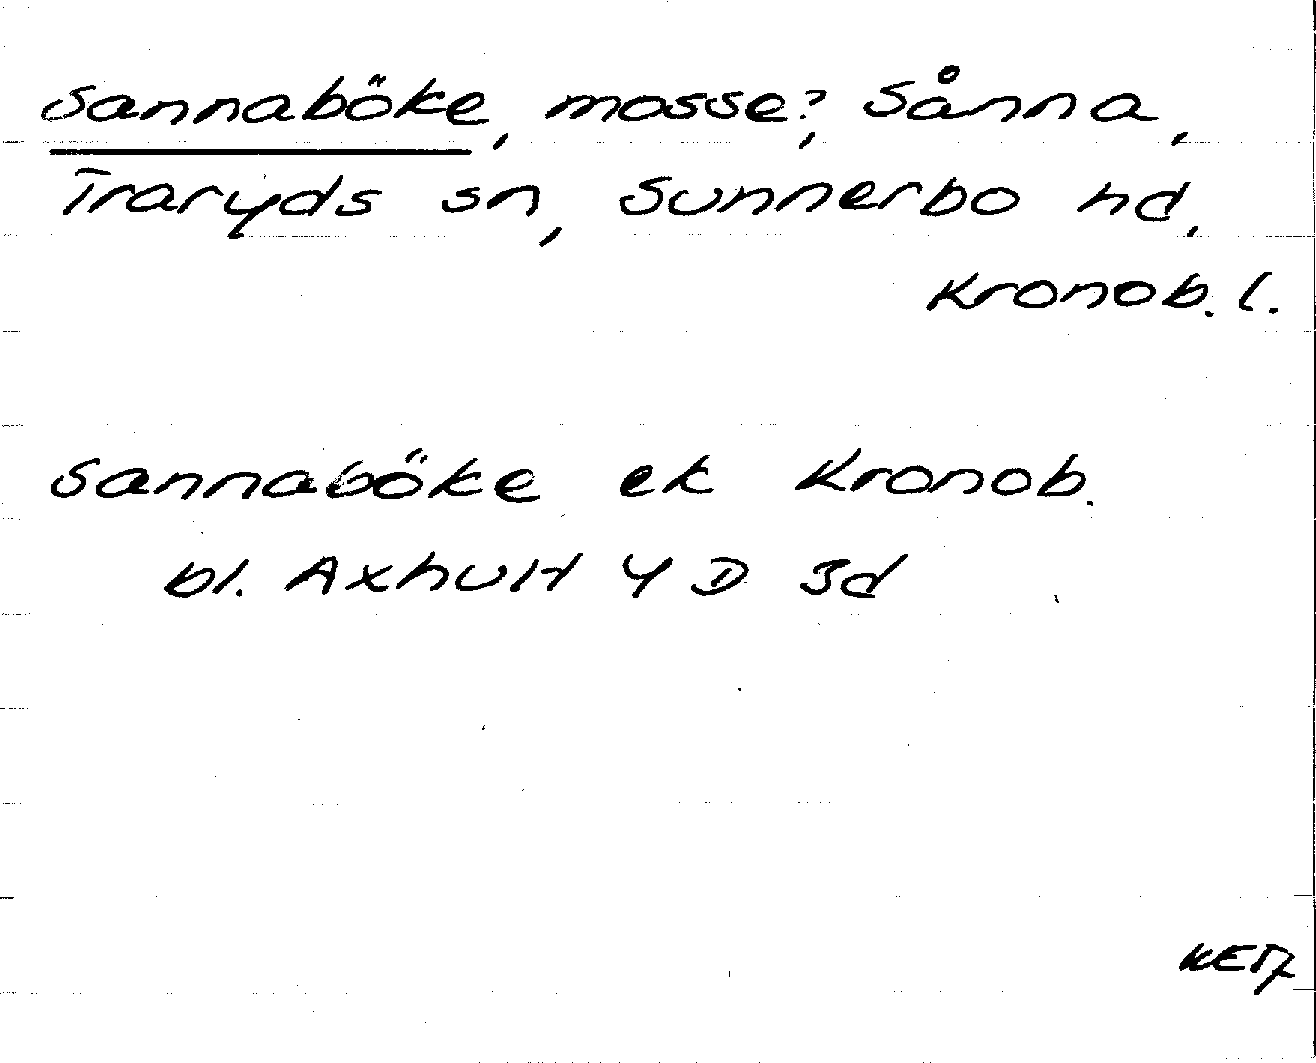 Sannaböke, mosse?, Sånna,
Traryds sn, Sunnerbo hd,
Kronob. l.
Sannaböke ek Kronob.
bl. Axhult 4 D 3d